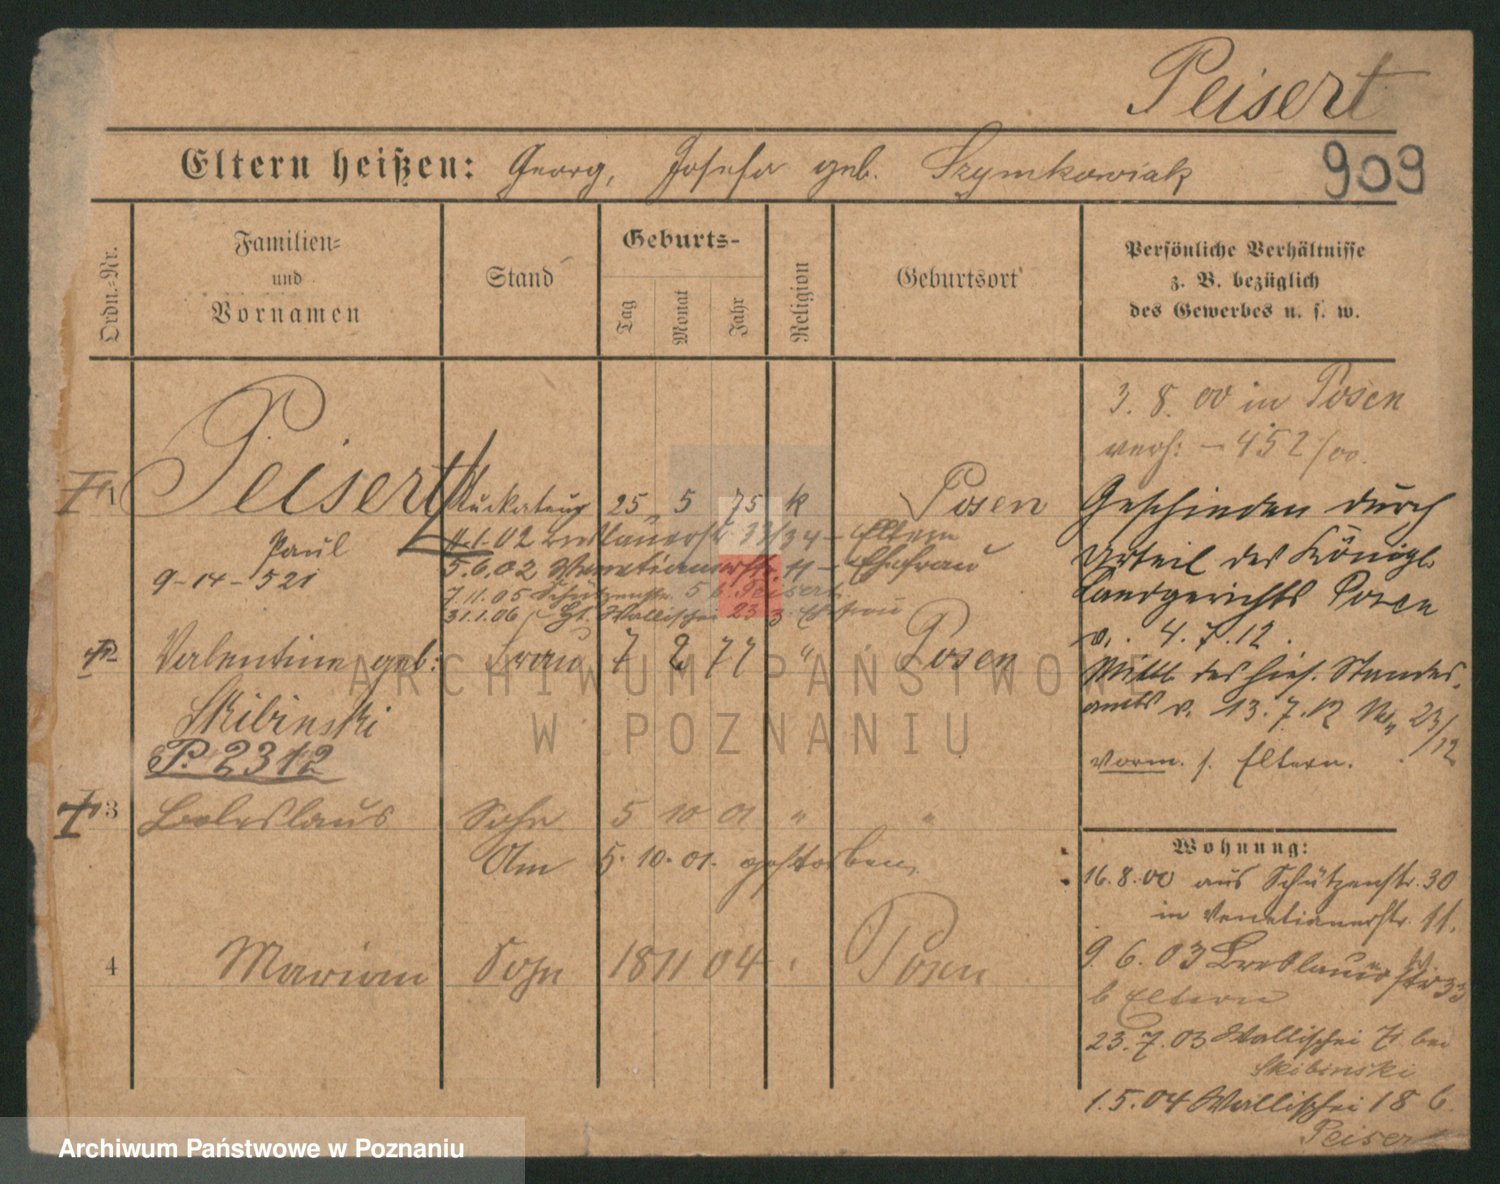 Peisert
Eltern heißen: Georg, Josefa geb. Szymkowiak
909
Ordn.-Nr.
Familien-
und
Vornamen
Stand
Geburts-
Tag
Monat
Jahr
Religion
Geburtsort
Persönliche Verhältnisse
z. B. bezüglich
des Gewerbes u. s. w.
3. 8. 00 in Posen
verh: - 452/00.
1 Peisert Stuckateur 25 5 75 k Posen
Paul
9-14-521
4.1.02 Breslauerstr 33/34 - Eltern
5.6.02 Venetianerstr. 11 - Ehefrau
7.11.05 Schützenstr. 5 b. Peisert
31.1.06 Wallischei 23 z. Ehefrau
Geschieden durch
Urteil des Königl.
Landgerichts Posen
v. 4. 7. 12.
Mittl. des hies. Standes-
amts v. 13. 7. 12 23/12
vorm. s. Eltern.
Valentine geb: Frau 7 2 77 " Posen
Skibinski
P. 2312
3 Boleslaus Sohn 5 10 01 " "
Am 5. 10. 01. gestorben.
4 Marian Sohn 18 11 04 Posen
Wohnung:
16.8.00 aus Schützenstr. 30
in Venetianerstr. 11.
9. 6. 03 Breslauerstr 33
b Eltern
23. 7. 03 Wallischei 7 bei
Skibinski
1. 5. 04 Wallischei 18 b.
Peisert
ARCHIWUM PAŃSTWOWE
W POZNANIU
Archiwum Państwowe w Poznaniu